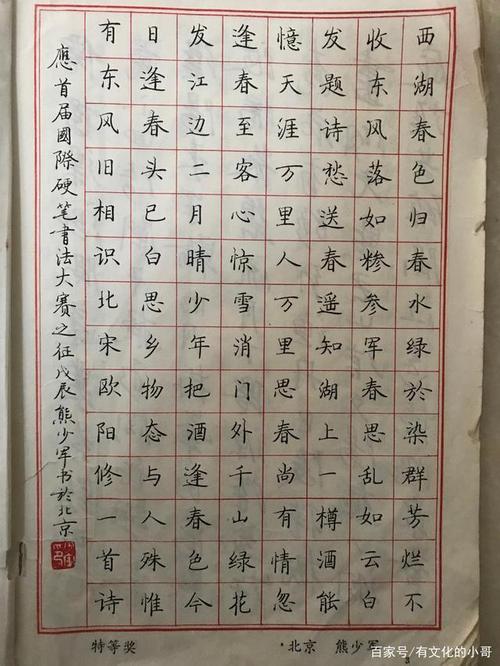 西湖春色归春水绿於染群芳烂不
收东风落如糁参军春思乱如云白
发题诗愁送春遥知湖上一樽酒能
憶天涯万里人万里思春尚有情忽
逢春至客心惊雪消门外千山绿花
发江边二月晴少年把酒逢春色今
日逢春头已白思乡物态与人殊惟
有东风旧相识北宋欧阳修一首诗
應首届國際硬笔書法大赛之征戊辰熊少军书於北京
特等奖
·北京 熊少军
3
百家号/有文化的小哥